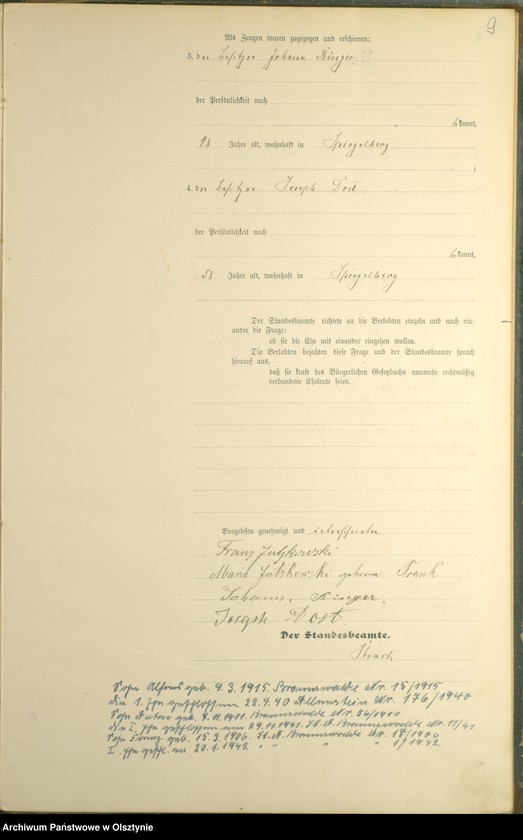 9
Als Zeugen waren zugezogen und erschienen:
3. der Besitzer Johann Ringer
der Persönlichkeit nach
bekannt,
Jahre alt, wohnhaft in Spiegelberg
;
4. der Besitzer Joseph Dost
der Persönlichkeit nach
bekannt,
58 Jahre alt, wohnhaft in Spiegelberg
Der Standesbeamte richtete an die Verlobten einzeln und nach ein-
ander die Frage:
ob sie die Ehe mit einander eingehen wollen.
Die Verlobten bejahten diese Frage und der Standesbeamte sprach
hierauf aus,
daß sie kraft des Bürgerlichen Gesetzbuchs nunmehr rechtmäßig
verbundene Eheleute seien.
Vorgelesen genehmigt und unterschrieben
Franz Jutzkowski
Maria Jutzkowski geborene Frank
Johann Ringer.
Joseph Dost
Der Standesbeamte.
Sohn Alfons geb. 4.3.1915. Braunswalde Nr. 15/1915
die 1. Ehe geschlossen 22.4.40 Allenstein Nr. 176/1940
Sohn Anton geb. 9.11.1911. Braunswalde Nr. 56/1911
die I. Ehe geschlossen am 29.11.1941. St. A. Braunswalde Nr. 11/41
Sohn Franz geb. 15.3.1906. St. A. Braunswalde Nr. 18/1906
I. Ehe geschl. am 20.1.1942 " " " " 1/1942
Archiwum Państwowe w Olsztynie